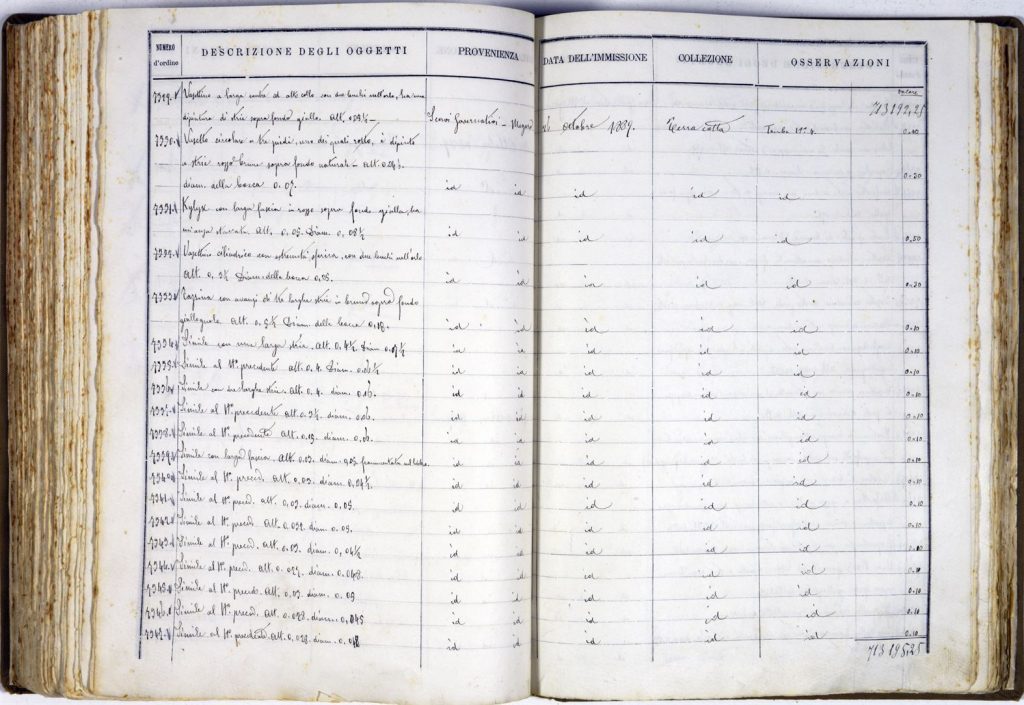 NUMERO d'ordine DESCRIZIONE DEGLI OGGETTI PROVENIENZA DATA DELL'IMMISSIONE COLLEZIONE OSSERVAZIONI
Valore
7329 Vasettino a larga ed alto collo con due buchi nell'orlo, ha una 713192,25
dipintura di strie sopra fondo giallo. Alt. Scavi Governativi - Megara 26 ottobre 1889. Terra cotta Tomba Nº 4. 0.40
7330 Vasetto circolare a tre piedi, uno dei quali rotto, è dipinto
a strie rosso brune sopra fondo naturale - Alt. 0.04½. 0.20
diam. della bocca 0.07. id id id id id
7331 Kylix con larga fascia in rosso sopra fondo giallo, ha
un'ansa staccata. Alt. 0.05. Diam. 0,08½ id id id id id 0.50
7332 Vasettino cilindrico con estremità sferica, con due buchi nell'orlo
Alt. 0. Diam. della bocca 0.03. id id id id id 0.20
7333 Tazzina con avanzi di tre larghe strie in bruno sopra fondo
giallognolo. Alt. 0.5½ Diam. della bocca 0.18. id id id id id 0.10
7334 Simile con una larga stria. Alt. 0.4½ Diam 0.17½ id id id id id 0.10
7335 Simile al Nº precedente Alt. 0.4. Diam. 0.06½ id id id id id 0.10
7336 Simile con due larghe strie. Alt. 0.4. diam. 0.16. id id id id id 0.10
7337 Simile al Nº precedente Alt. 0.3½. diam. 0.06. id id id id id 0.10
7338 Simile al Nº precedente Alt. 0.03. diam. 0.06. id id id id id 0.10
7339 Simile con larga fascia. Alt. 0.03. diam. 0.05 frammentata id id id id id 0.10
7340 Simile al Nº preced. Alt. 0.03. diam. 0.04½. id id id id id 0.10
7341 Simile al Nº preced. Alt. 0.03. diam. 0.05. id id id id id 0.10
7342 Simile al Nº preced. Alt. 0.032. diam. 0.05. id id id id id 0.10
7343 Simile al Nº preced. Alt. 0.03. diam. 0,04½ id id id id id 0.10
7344 Simile al Nº preced. Alt. 0.027. diam. 0.048. id id id id id 0.10
7345 Simile al Nº preced. Alt. 0.03. diam. 0.05 id id id id id 0.10
7346 Simile al Nº preced. Alt. 0.028. diam. 0,045 id id id id id 0.10
7347 Simile al Nº precedente. Alt. 0.028. diam. 0.048 id id id id id 0.10
713195,25